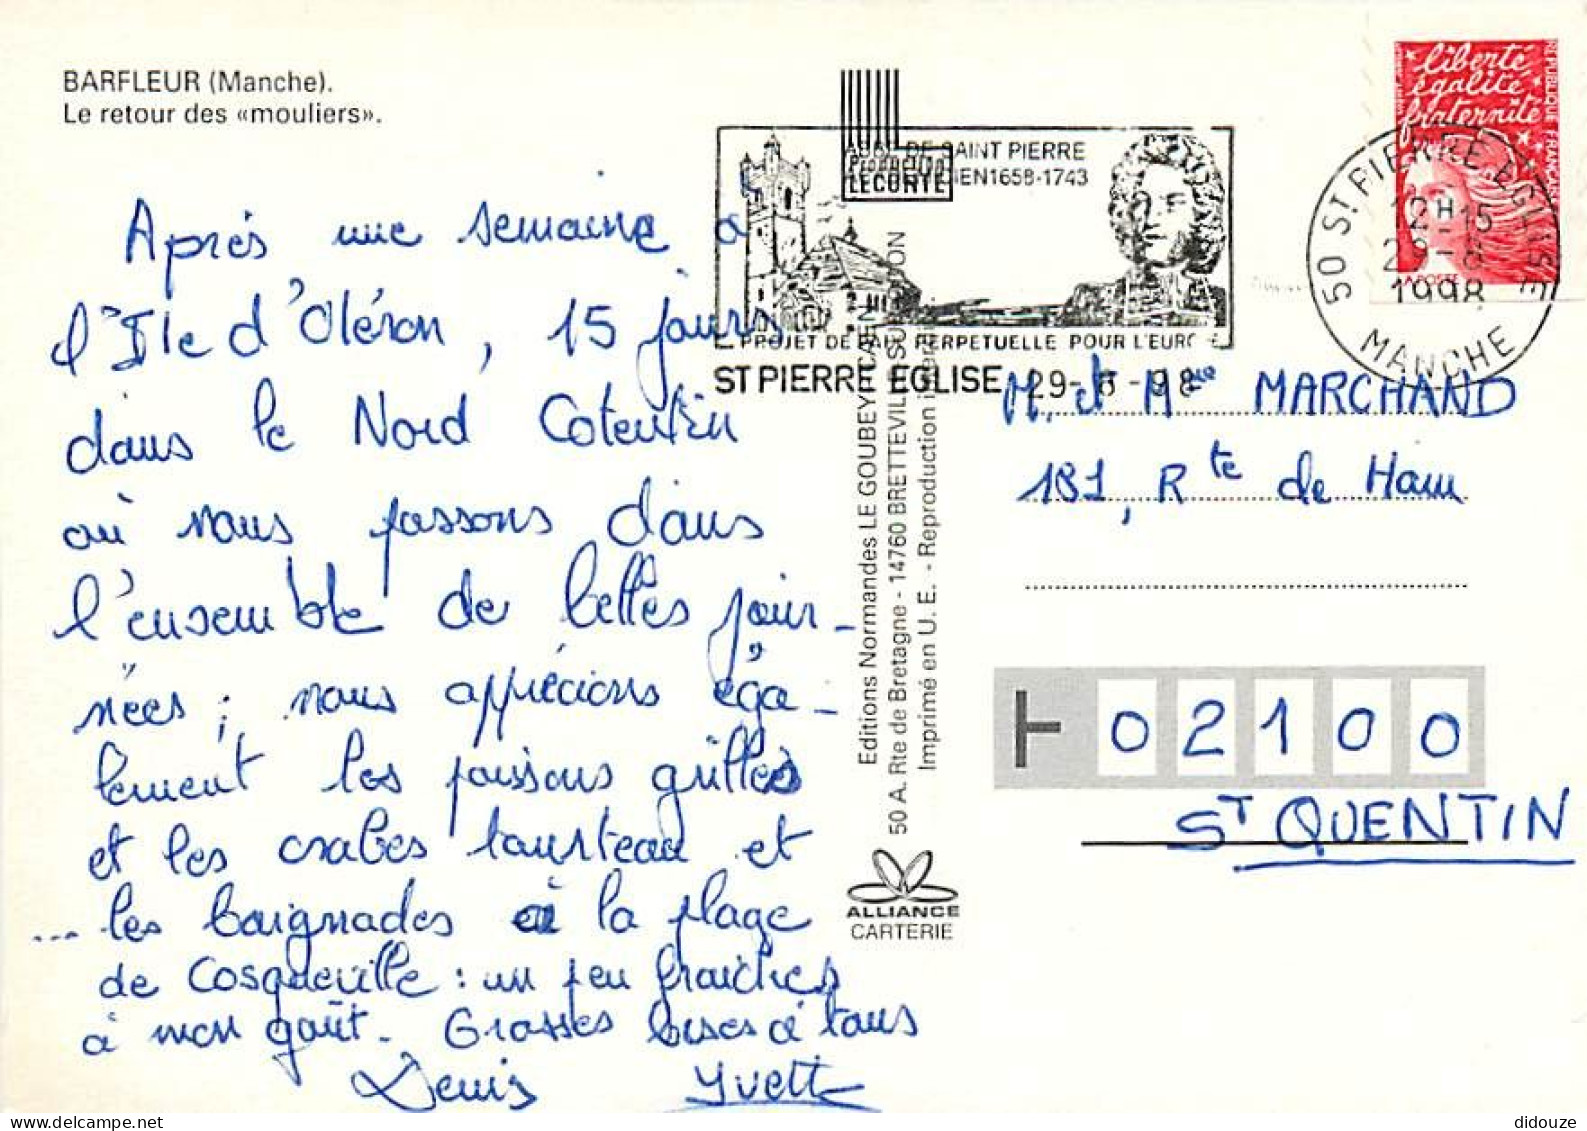 BARFLEUR (Manche).
Le retour des «mouliers».
Après une semaine à
l'Ile d'Oléron, 15 jours
dans le Nord Cotentin
où nous passons dans
l'ensemble de belles jour-
nées ; nous apprécions éga-
lement les poissons grillés
et les crabes tourteau et
... les baignades à la plage
de Cosqueville : un peu fraiches
à mon goût. Grosses bises à tous
Denis Yvette
Production
LECONTE
DE SAINT PIERRE
1658-1743
PROJET DE PAIX PERPETUELLE POUR L'EUROPE
ST PIERRE EGLISE 29-8-98
liberté
égalité
fraternité
REPUBLIQUE FRANÇAISE
LA POSTE
50 ST PIERRE EGLISE
12H15
29-8
1998
MANCHE
M. et Mme MARCHAND
181, Rte de Ham
02100
ST QUENTIN
Editions Normandes LE GOUBEY CAEN
50 A. Rte de Bretagne - 14760 BRETTEVILLE SUR ODON
Imprimé en U. E. - Reproduction interdite
ALLIANCE
CARTERIE
didouze